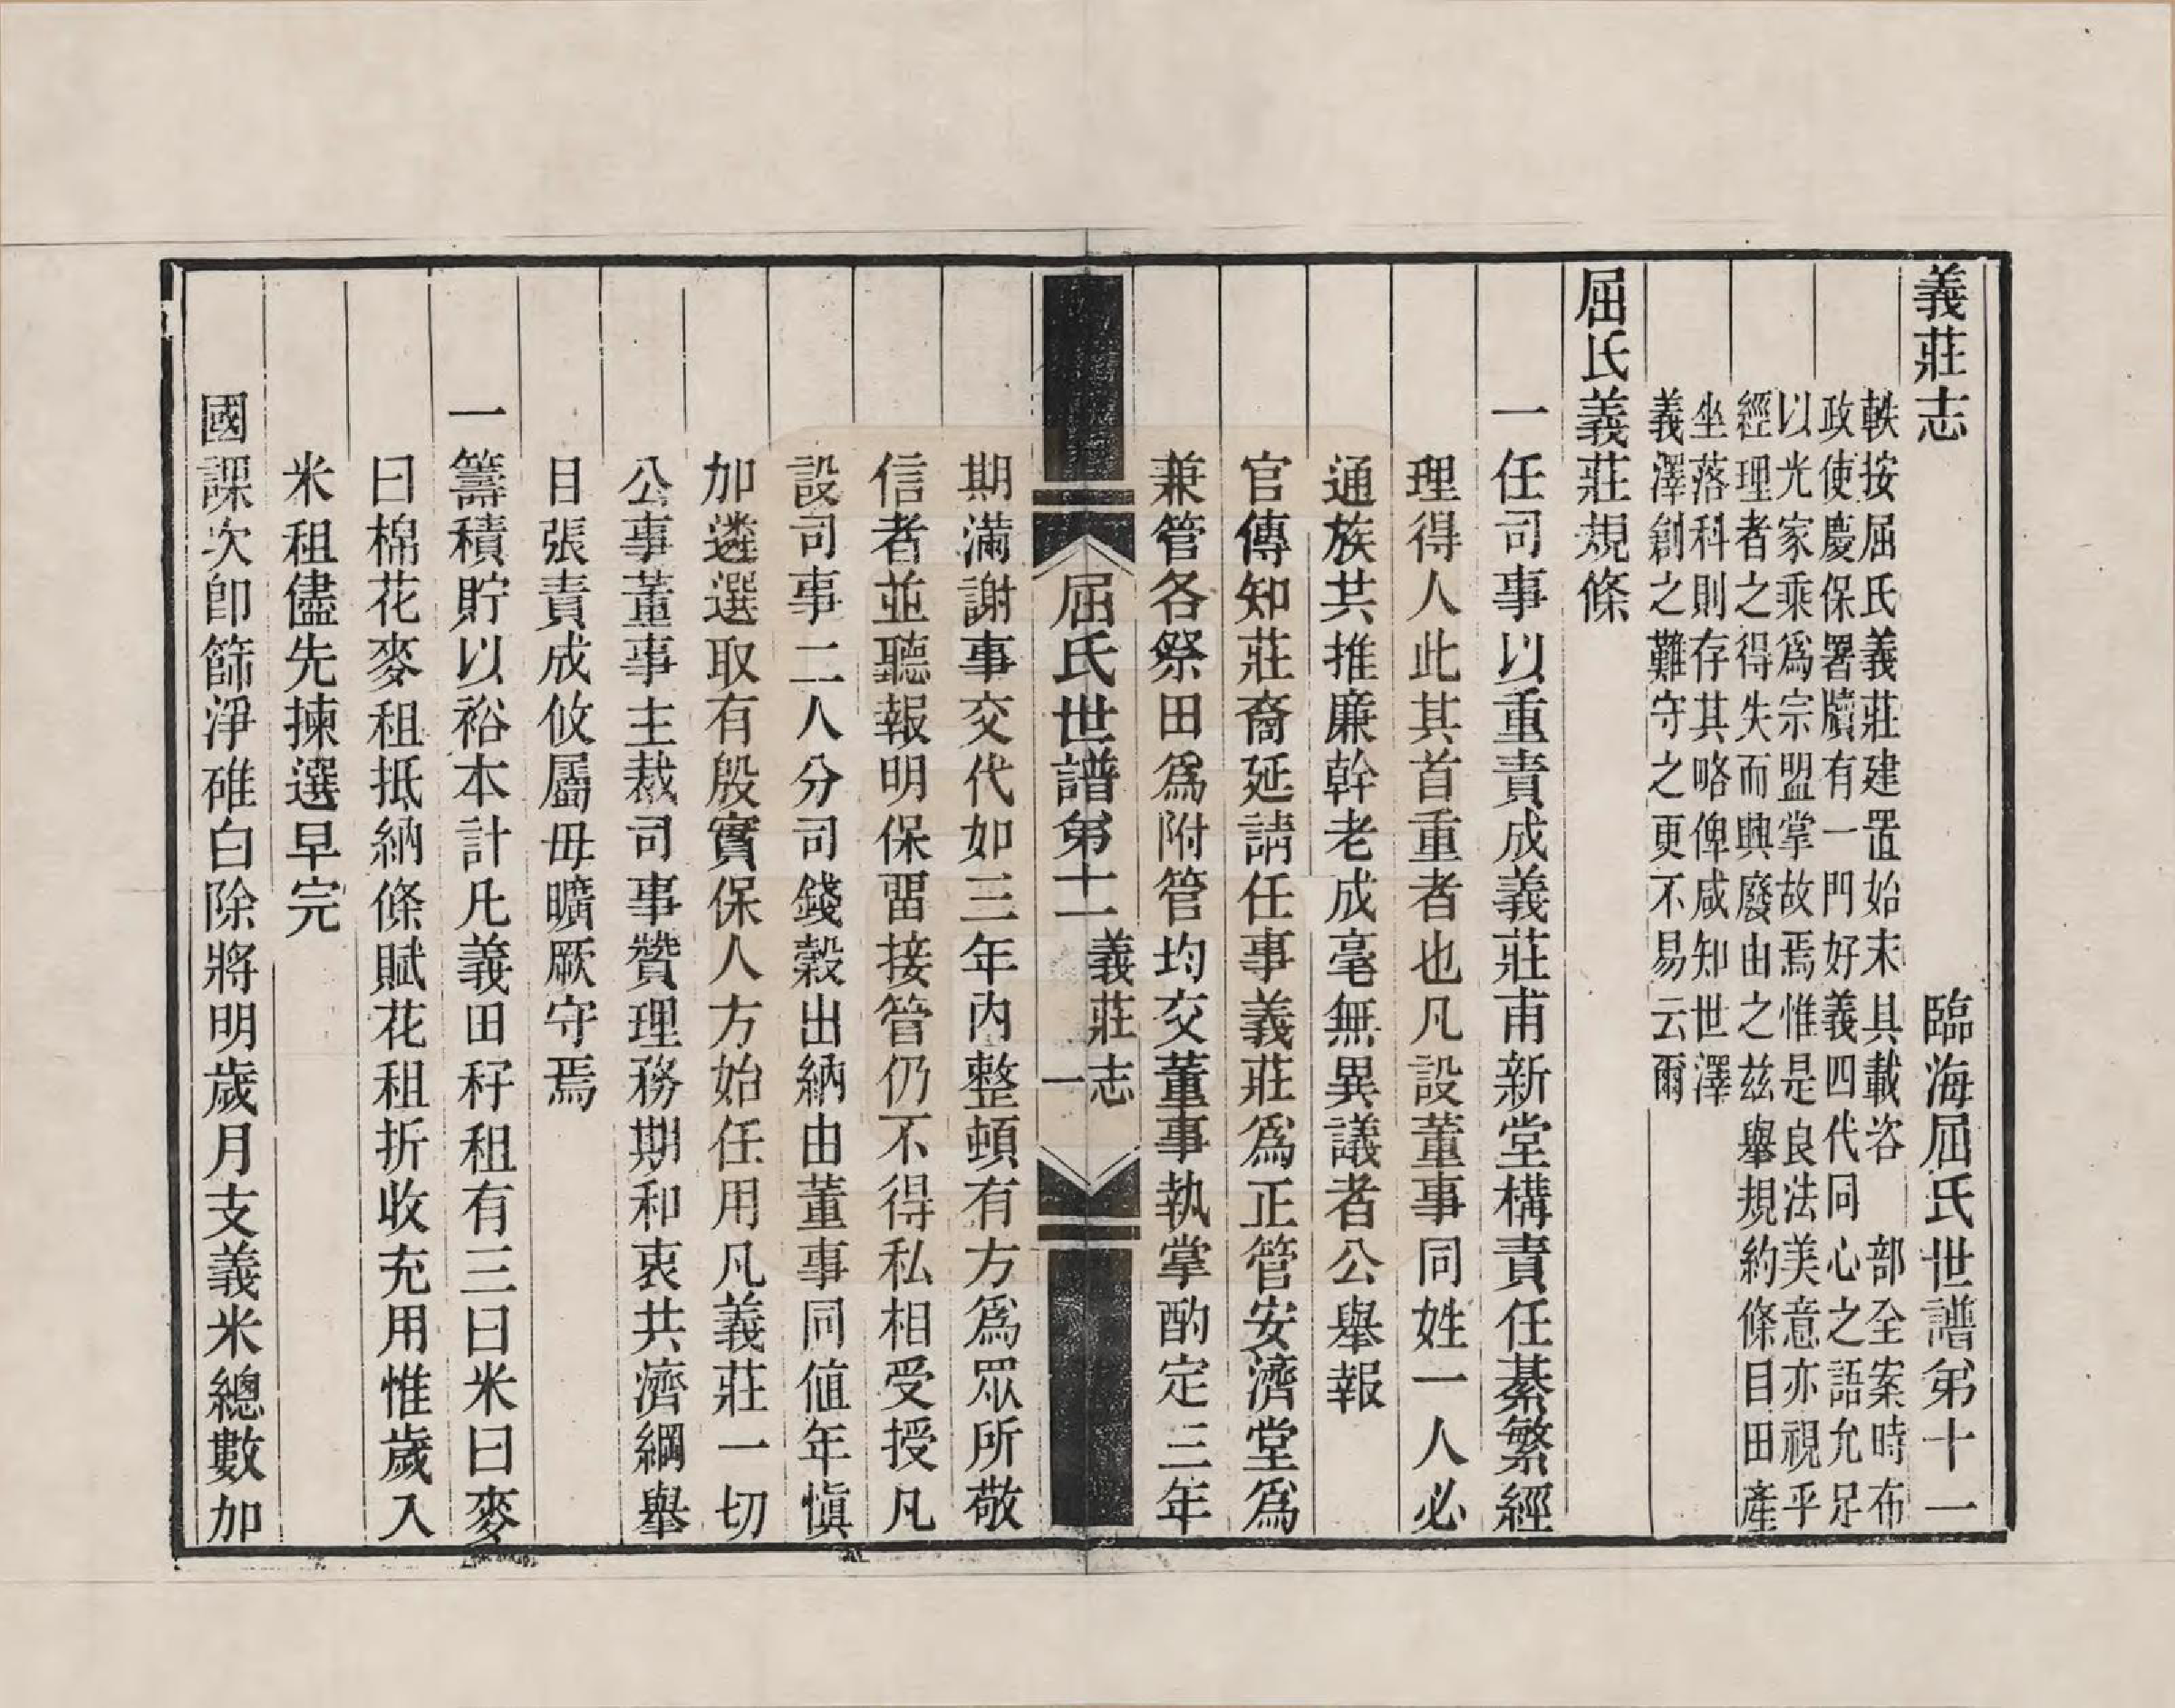 義莊志　臨海屈氏世譜第十一
軼按屈氏義莊建置始末具載咨　部全案時布
政使慶保署牘有一門好義四代同心之語允足
以光家乘爲宗盟掌故焉惟是良法美意亦視乎
經理者之得失而興廢由之玆舉規約條目田產
坐落科則存其略俾咸知世澤
義澤創之難守之更不易云爾
屈氏義莊規條
一任司事以重責成義莊甫新堂構責任綦繁經
理得人此其首重者也凡設董事同姓一人必
通族共推廉幹老成毫無異議者公舉報
官傳知莊裔延請任事義莊爲正管安濟堂爲
兼管各祭田爲附管均交董事執掌酌定三年
屈氏世譜第十一　義莊志　一
期滿謝事交代如三年內整頓有方爲眾所敬
信者並聽報明保畱接管仍不得私相受授凡
設司事二人分司錢穀出納由董事同値年愼
加遴選取有殷實保人方始任用凡義莊一切
公事董事主裁司事贊理務期和衷共濟綱舉
目張責成攸屬毋曠厥守焉
一籌積貯以裕本計凡義田秄租有三曰米曰麥
曰棉花麥租抵納條賦花租折收充用惟歲入
米租儘先揀選早完
國課次卽篩淨碓白除將明歲月支義米總數加